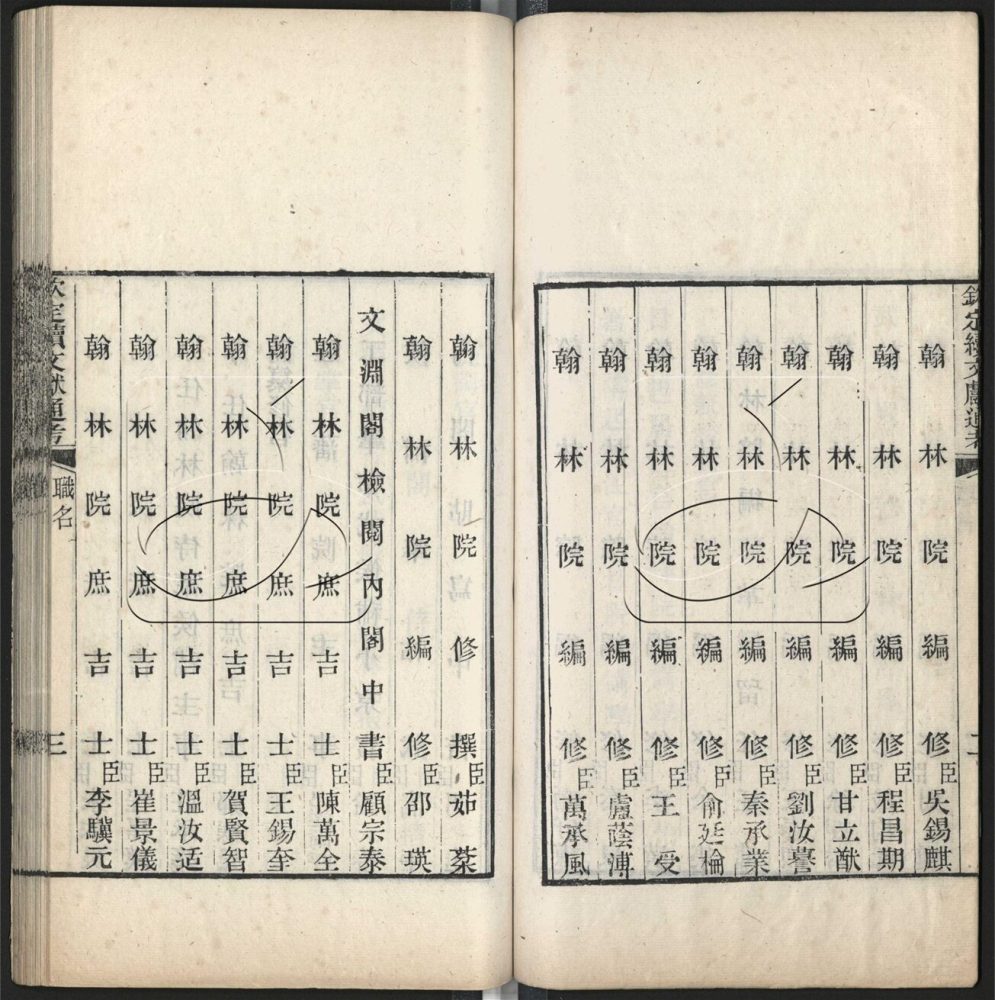 欽定續文獻通考
二
翰林院編修臣吳錫麒
翰林院編修臣程昌期
翰林院編修臣甘立猷
翰林院編修臣劉汝謩
翰林院編修臣秦承業
翰林院編修臣俞廷檢
翰林院編修臣王受
翰林院編修臣盧蔭溥
翰林院編修臣萬承風
翰林院修撰臣茹棻
翰林院編修臣邵瑛
文淵閣檢閱內閣中書臣顧宗泰
翰林院庶吉士臣陳萬全
翰林院庶吉士臣王錫奎
翰林院庶吉士臣賀賢智
翰林院庶吉士臣溫汝适
翰林院庶吉士臣崔景儀
翰林院庶吉士臣李驥元
欽定續文獻通考
職名
三